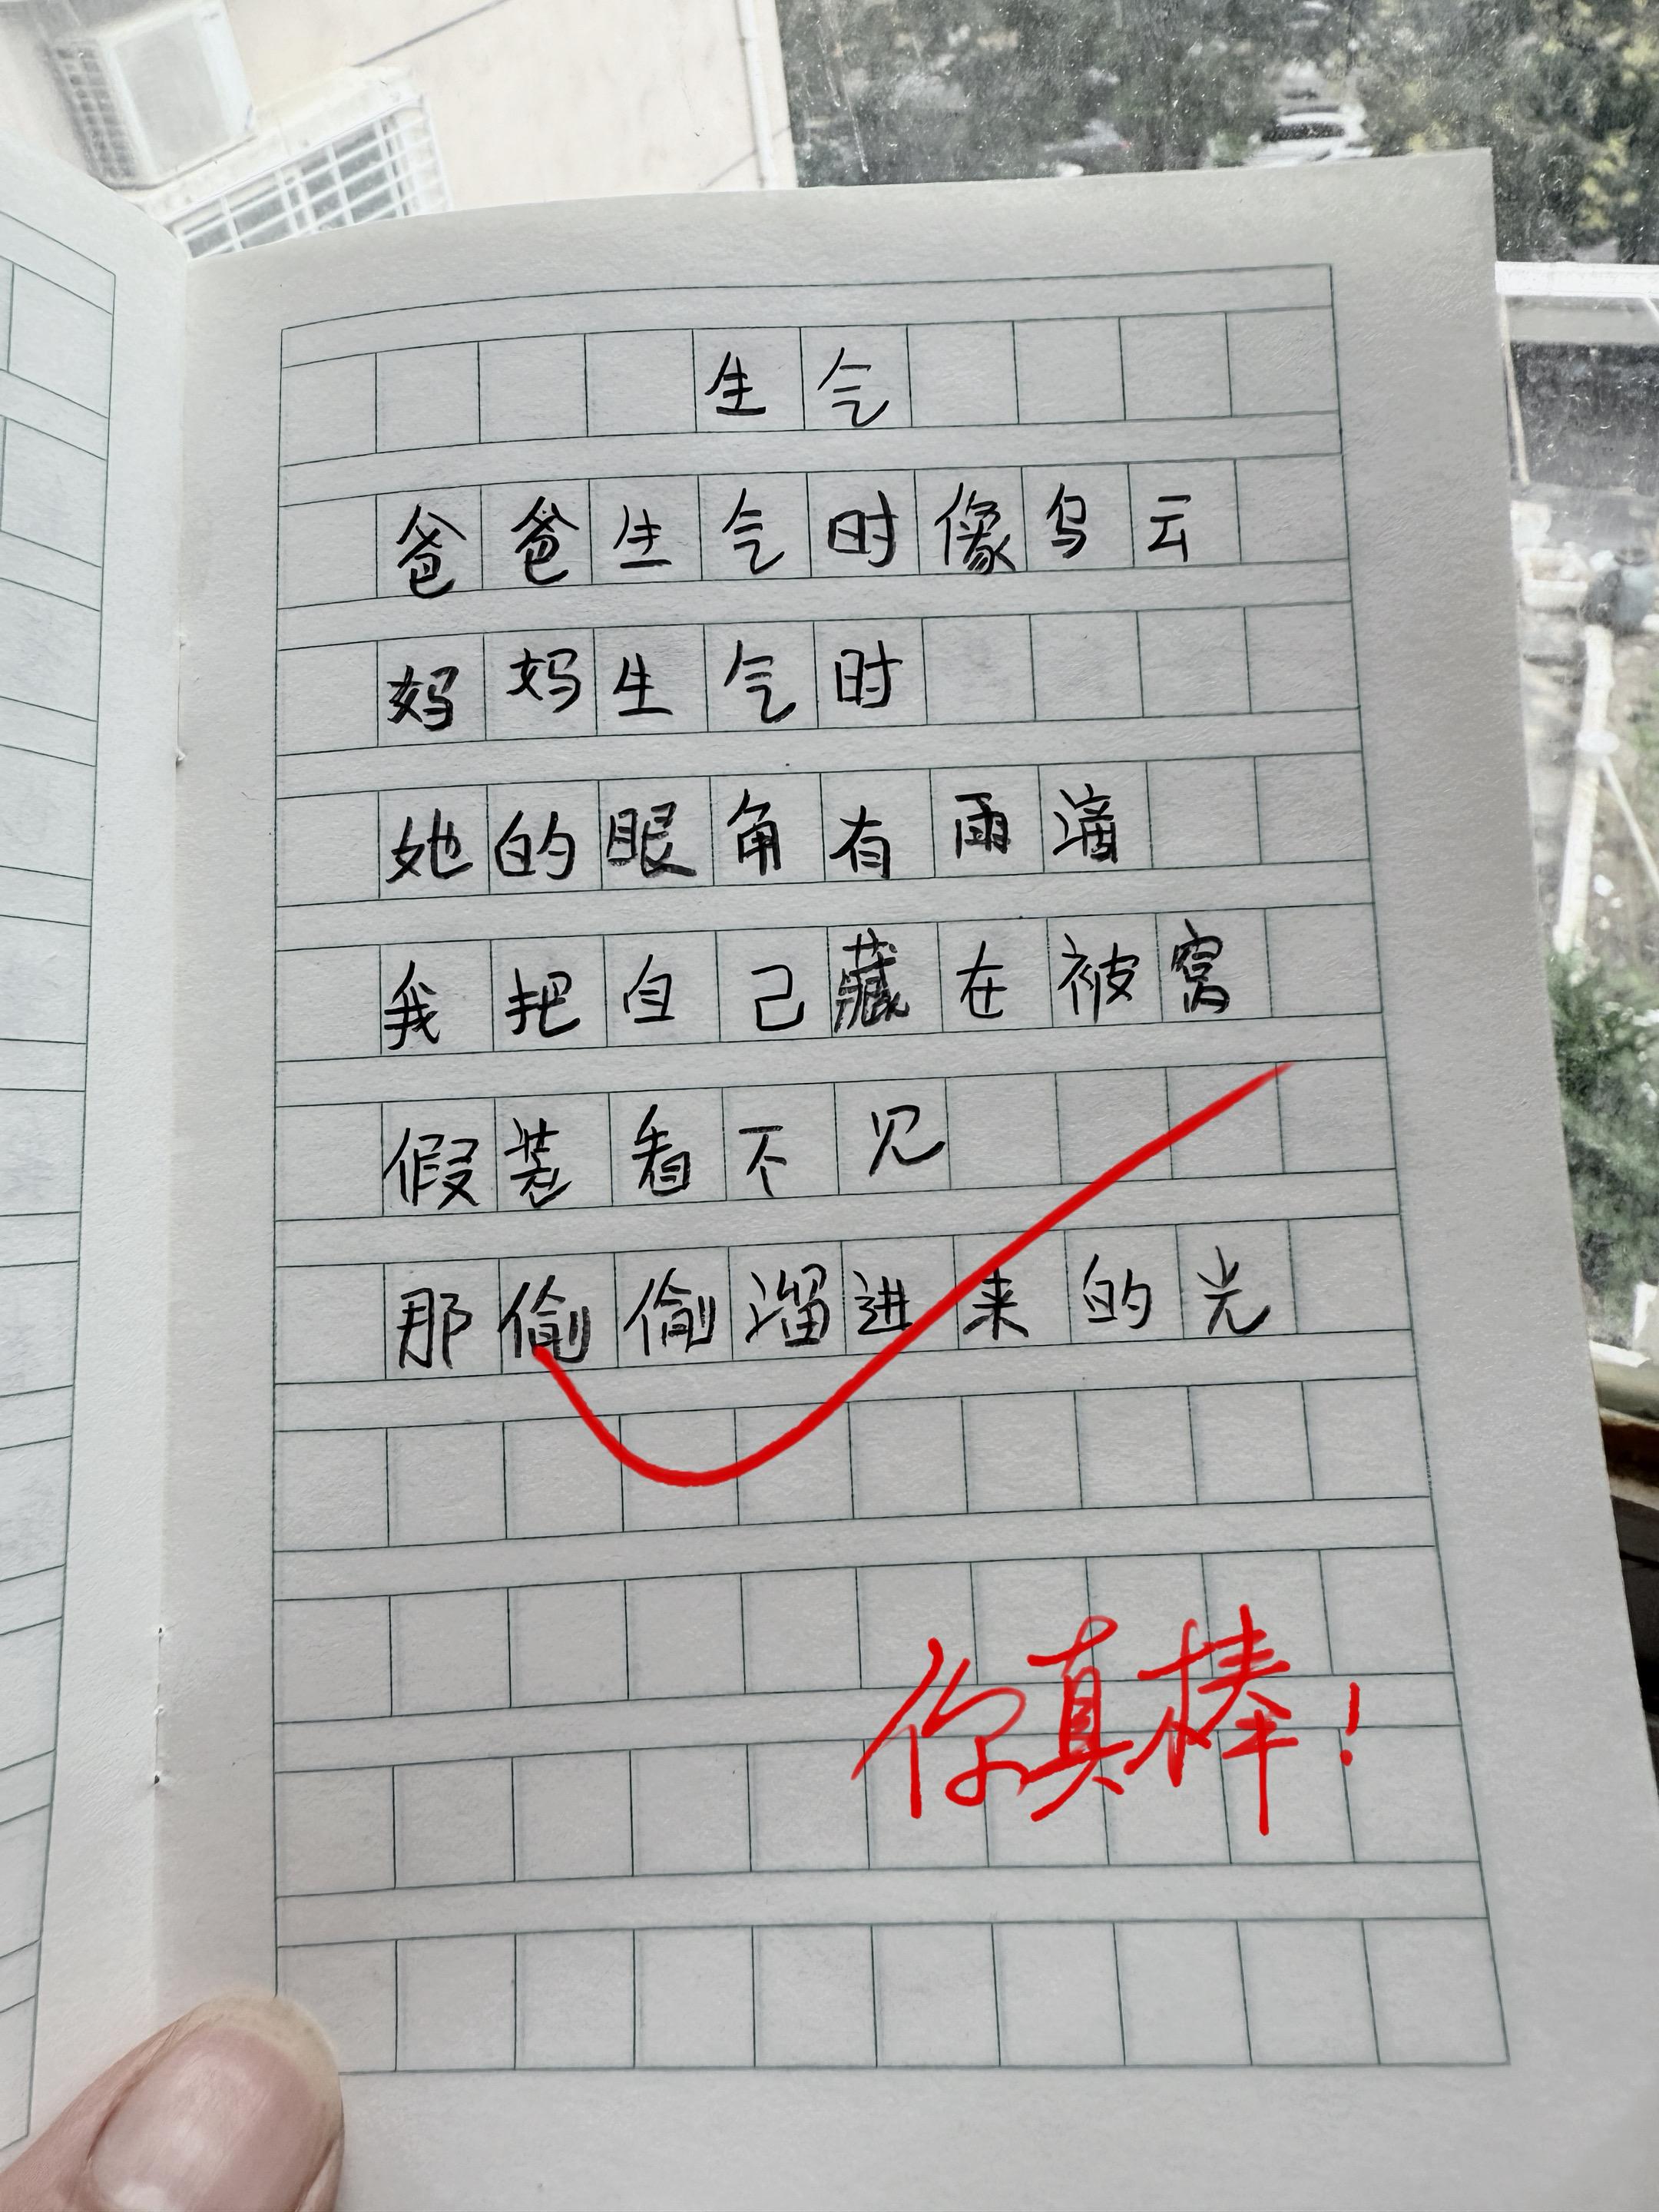 生气
爸爸生气时像乌云
妈妈生气时
她的眼角有雨滴
我把自己藏在被窝
假装看不见
那偷偷溜进来的光
你真棒！